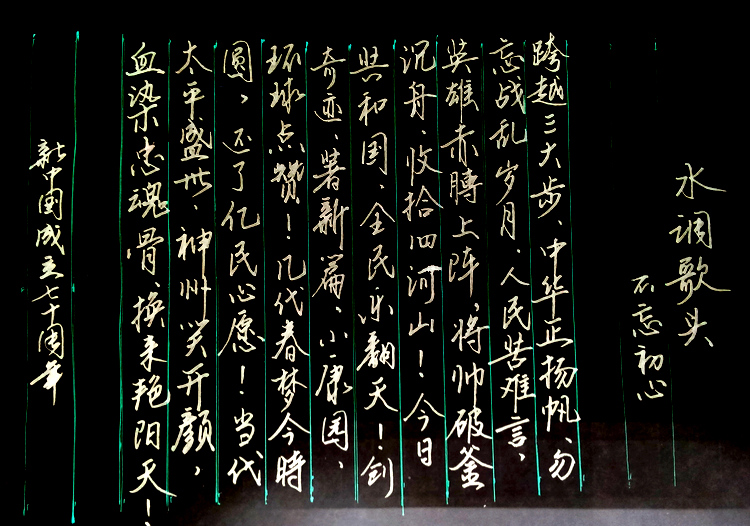 水调歌头
不忘初心
跨越三大步、中华正扬帆、勿
忘战乱岁月、人民苦难言、
英雄赤膊上阵、将帅破釜
沉舟、收拾四河山！今日
共和国、全民乐翻天！创
奇迹、著新篇、小康圆、
环球点赞！几代春梦今時
圆，还了亿民心愿！当代
太平盛世、神州笑开颜，
血染忠魂骨、换来艳阳天！
新中国成立七十周年